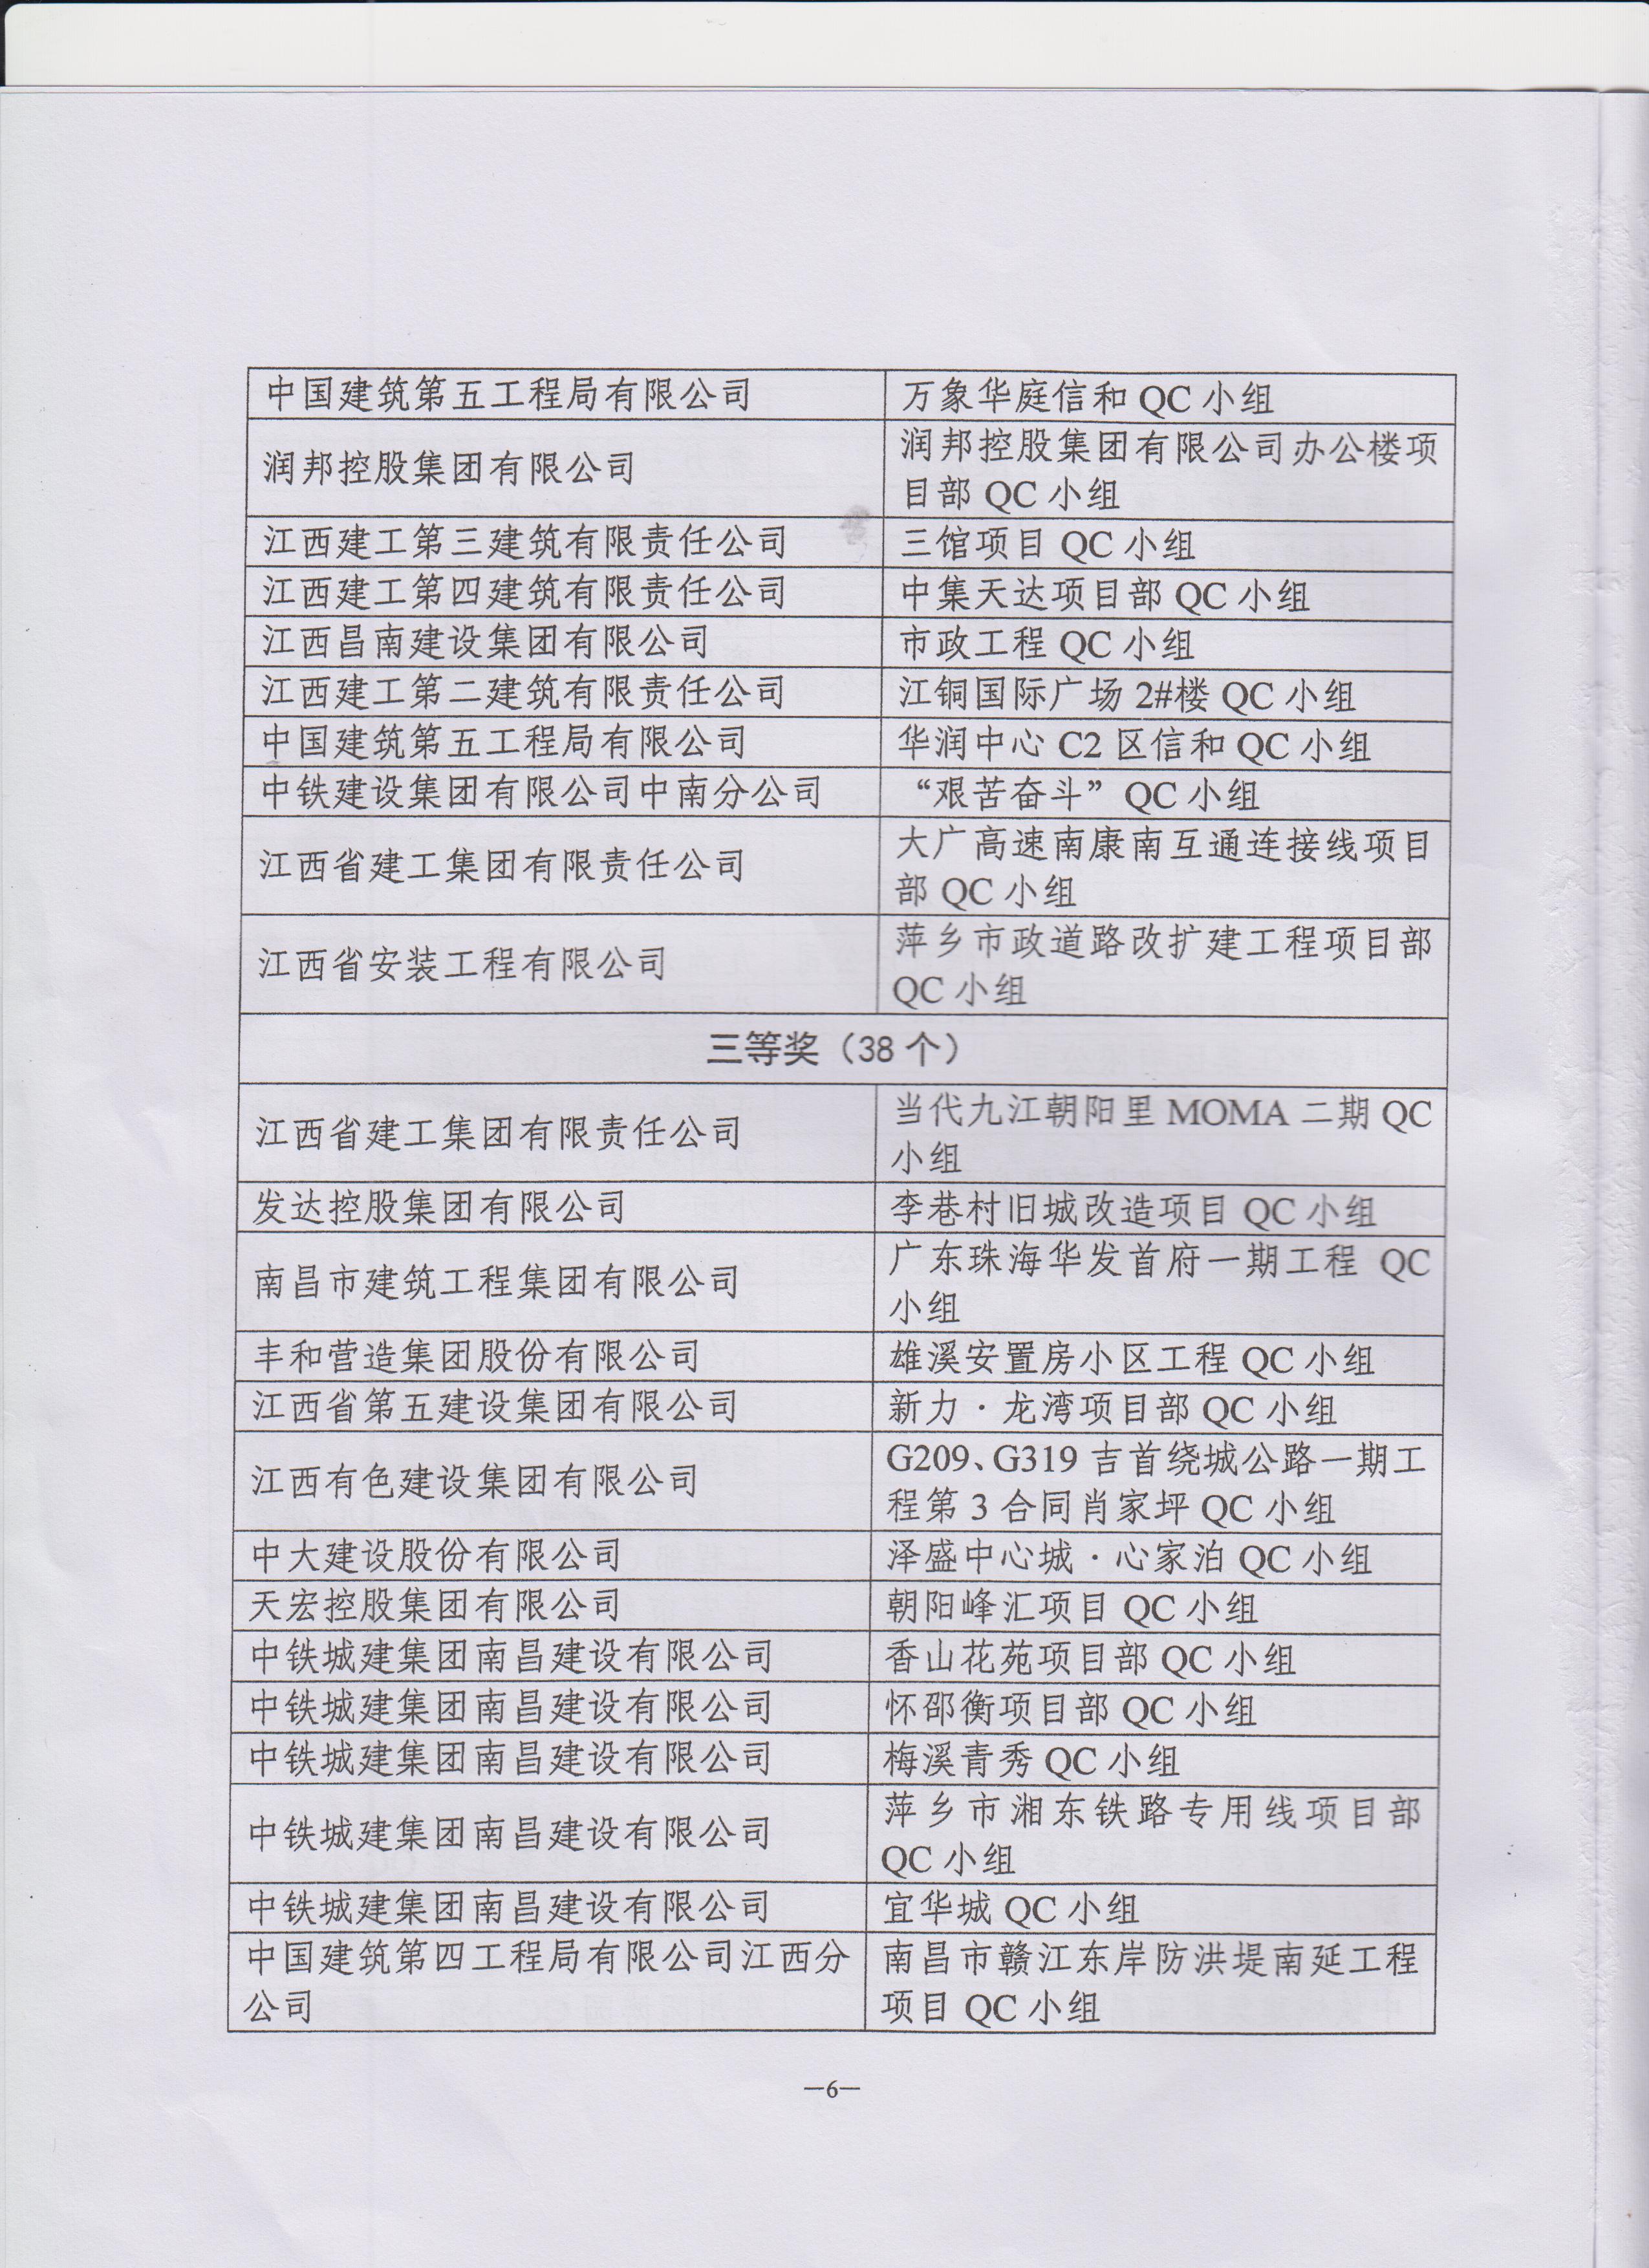 中国建筑第五工程局有限公司
万象华庭信和 QC 小组
润邦控股集团有限公司
润邦控股集团有限公司办公楼项
目部 QC 小组
江西建工第三建筑有限责任公司
三馆项目 QC 小组
江西建工第四建筑有限责任公司
中集天达项目部 QC 小组
江西昌南建设集团有限公司
市政工程 QC 小组
江西建工第二建筑有限责任公司
江铜国际广场 2#楼 QC 小组
中国建筑第五工程局有限公司
华润中心 C2 区信和 QC 小组
中铁建设集团有限公司中南分公司
“艰苦奋斗” QC 小组
江西省建工集团有限责任公司
大广高速南康南互通连接线项目
部 QC 小组
江西省安装工程有限公司
萍乡市政道路改扩建工程项目部
QC 小组
三等奖（38 个）
江西省建工集团有限责任公司
当代九江朝阳里 MOMA 二期 QC
小组
发达控股集团有限公司
李巷村旧城改造项目 QC 小组
南昌市建筑工程集团有限公司
广东珠海华发首府一期工程 QC
小组
丰和营造集团股份有限公司
雄溪安置房小区工程 QC 小组
江西省第五建设集团有限公司
新力·龙湾项目部 QC 小组
江西有色建设集团有限公司
G209、G319 吉首绕城公路一期工
程第 3 合同肖家坪 QC 小组
中大建设股份有限公司
泽盛中心城·心家泊 QC 小组
天宏控股集团有限公司
朝阳峰汇项目 QC 小组
中铁城建集团南昌建设有限公司
香山花苑项目部 QC 小组
中铁城建集团南昌建设有限公司
怀邵衡项目部 QC 小组
中铁城建集团南昌建设有限公司
梅溪青秀 QC 小组
中铁城建集团南昌建设有限公司
萍乡市湘东铁路专用线项目部
QC 小组
中铁城建集团南昌建设有限公司
宜华城 QC 小组
中国建筑第四工程局有限公司江西分
公司
南昌市赣江东岸防洪堤南延工程
项目 QC 小组
—6—